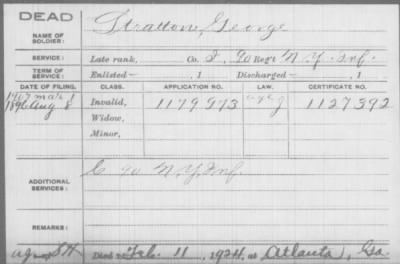 DEAD
NAME OF SOLDIER:
Stratton, George
SERVICE:
Late rank, Co. I, 90 Reg't N.Y. Inf.
TERM OF SERVICE:
Enlisted , 1 Discharged , 1
DATE OF FILING.
CLASS.
APPLICATION NO.
LAW.
CERTIFICATE NO.
1896 Aug 8
Invalid,
1179973
1127392
Widow,
Minor,
ADDITIONAL SERVICES:
C 90 N.Y. Inf.
REMARKS:
Died Feb. 11, 1924, at Atlanta, Ga.